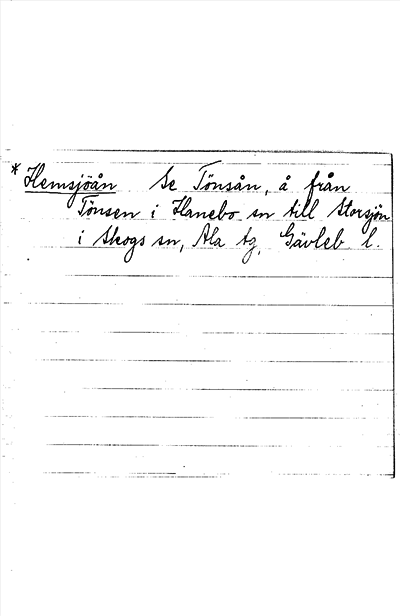 * Hemsjöån Se Tönsån, å från
Tönsen i Hanebo sn till Storsjön
i Skogs sn, Ala tg, Gävleb l.